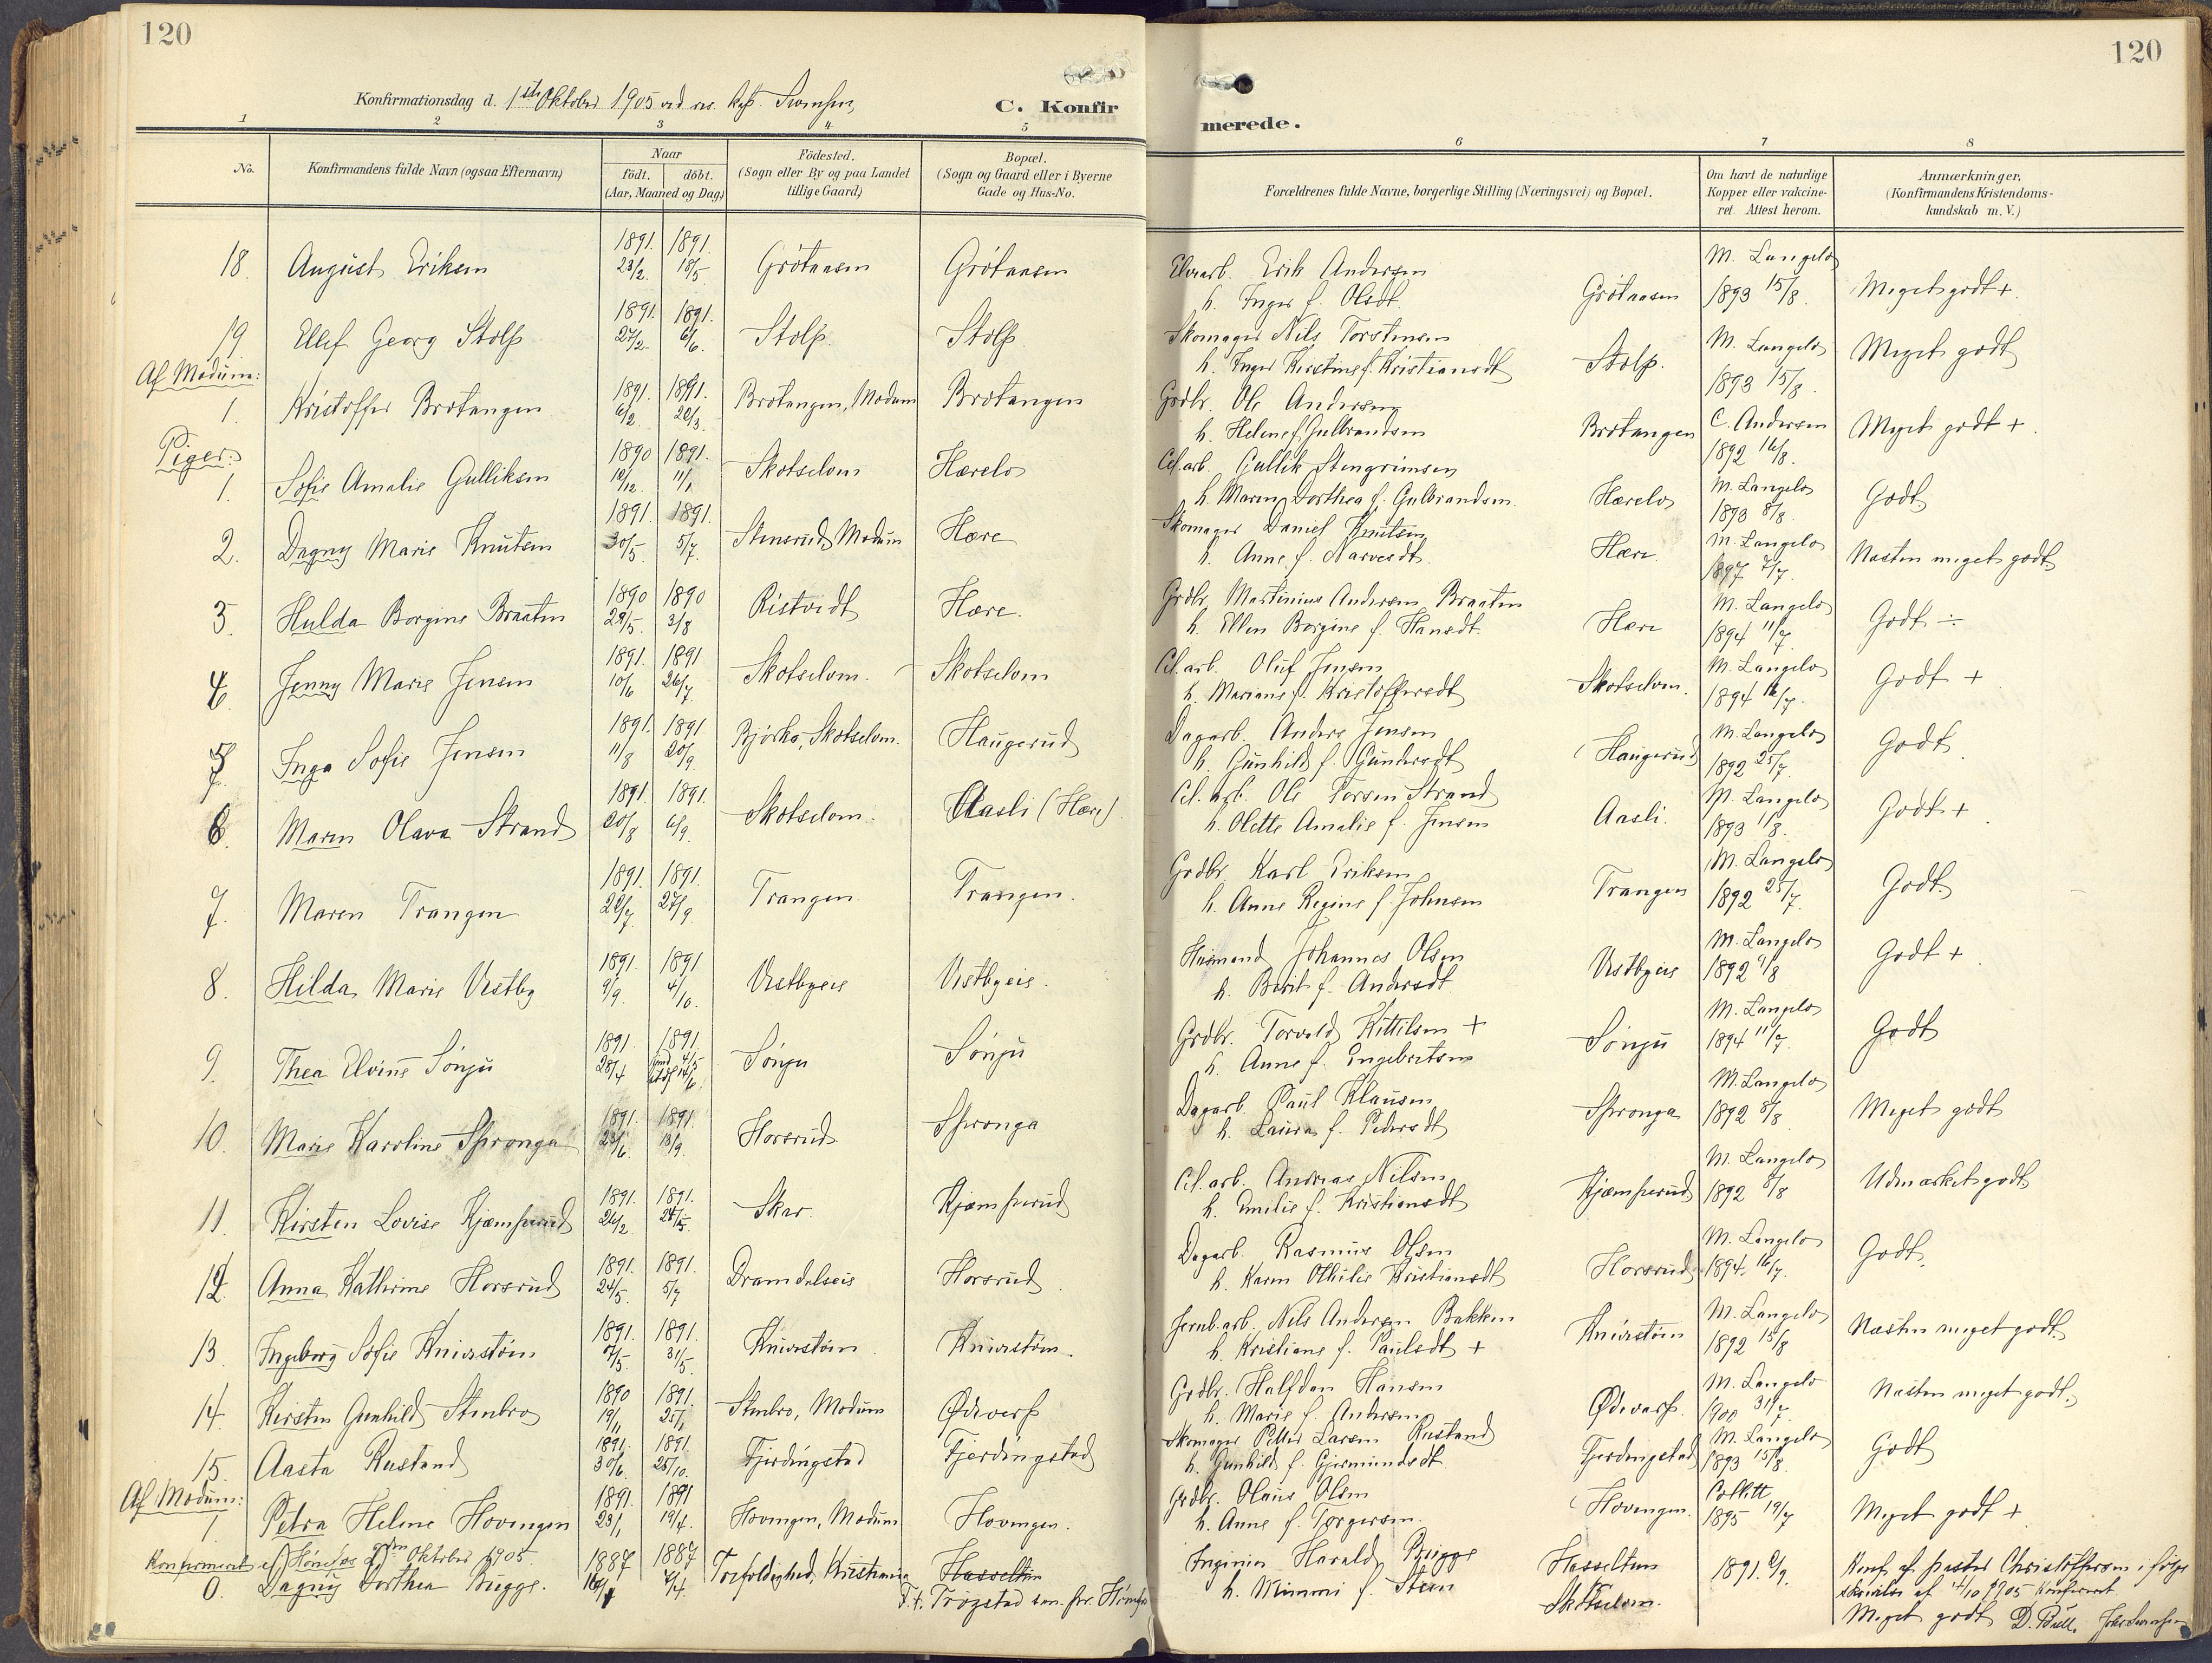 120
120
Konfirmationsdag d. 1ste Oktober 1905 ved
C. Konfirmerede.
1 2 3 4 5 6 7 8
No.
Konfirmandens fulde Navn (ogsaa Efternavn)
Naar
födt. döbt.
(Aar, Maaned og Dag)
Födested.
(Sogn eller By og paa Landet
tillige Gaard)
Bopæl.
(Sogn og Gaard eller i Byerne
Gade og Hus-No.
Forældrenes fulde Navne, borgerlige Stilling (Næringsvei) og Bopæl.
Om havt de naturlige
Kopper eller vakcine-
ret. Attest herom.
Anmærkninger.
(Konfirmandens Kristendoms-
kundskab m. V.)
18. August Eriksen 1891. 23/2. 1891. 18/5. Grótaasen Grótaasen Erik Andersen Grótaasen M. Langelo Meget godt +.
h. Inger f. Olsdt. 1893 15/8.
19 Ellef Georg Stolp 1891. 27/2. 1891. 6/6. Stolp. Stolp. Skomager Nils Torstensen Stolp. M. Langelo Meget godt
h. Inger Kirstine f. Kristiansdt 1893 15/8.
Af Modum:
1. Kristoffer Brotangen 1891. 6/2. 1891. 20/3. Brotangen, Modum Brotangen Grdbr. Ole Andersen Brotangen C. Andersen Meget godt +.
h. Helene f. Gulbrandsen 1892 16/8.
Piger:
1. Sofie Amalie Gulliksen 1890 12/12. 1891. 11/1 Skotselven Hærelo Cel.arb. Gullik Stengrimsen Hærelo M. Langelo Godt
h. Maren Dorthea f. Gulbrandsen. 1893 8/8.
2. Dagny Marie Knutsen 1891. 30/5. 1891. 5/7. Stensrud, Modum Hære Skomager Daniel Knutsen Hære M. Langelo Næsten meget godt
h. Anne f. Narvesdt. 1897 7/7.
3. Hulda Borgine Braaten 1890 29/5. 1890 3/8 Ristvedt Hære. Grdbr. Martinius Andersen Braaten Hære M. Langelo Godt ÷
h. Ellen Borgine f. Hansdt. 1894 11/7.
4. Jenny Marie Jensen 1891. 10/6 1891 26/7. Skotselven. Skotselven Cel.arb. Oluf Jensen Skotselven. M. Langelo Godt +
h. Mariane f. Kristoffersdt 1894 16/7.
5. Inga Sofie Jensen 1891. 11/8 1891 20/9. Bjórka, Skotselven. Haugerud Dagarb. Anders Jensen Haugerud M. Langelo Godt
h. Gunhild f. Gundersdt 1892 25/7.
6. Maren Olava Strand 1891. 20/8 1891. 6/9. Skotselven. Aasli (Hære). Cel.arb. Ole Torsen Strand Aasli. M. Langelo Godt +
h. Olette Amalie f. Jensen 1893 1/8.
7. Maren Trangen 1891. 22/7. 1891. 27/9. Trangen Trangen. Grdbr. Karl Eriksen Trangen M. Langelo Godt
h. Anne Regine f. Johnsen 1892 25/7.
8. Hilda Marie Vestby 1891. 9/9. 1891 4/10. Vestbyeie Vestbyeie. Husmand Johannes Olsen Vestbyeie M. Langelo Godt +
h. Berit f. Andersdt 1892 9/8
9. Thea Elvine Sónju 1891. 28/4 1891. Sónju Sónju Grdbr. Torvald Kittilsen + Sónju M. Langelo Godt
h. Anne f. Engebretsen 1894 11/7.
10. Marie Karoline Spronga 1891. 23/6. 1891. 13/9. Horsrud Spronga Dagarb. Paul Klausen Spronga M. Langelo Meget godt
h. Laura f. Pedersdt 1892 8/8
11. Kirsten Lovise Kjæmperud 1891. 26/2. 1891. 24/5. Skar. Kjæmperud Cel.arb. Andreas Nilsen Kjæmperud M. Langelo Udmærket godt
h. Emilie f. Kristiansdt 1892 8/8
12. Anna Kathrine Horsrud 1891. 24/5. 1891. 5/7 Dramdalseie Horsrud Dagarb. Rasmus Olsen Horsrud M. Langelo Godt.
h. Karen Othilie Kristiansdt 1894. 16/7.
13. Ingeborg Sofie Knivstóm 1891. 7/5. 1891. 31/5. Knivstóm. Knivstóm. Jernb.arb. Nils Andersen Bakken Knivstóm M. Langelo Næsten meget godt
h. Kristiane f. Paulsdt + 1892 15/8
14. Kirsten Gunhild Stenbro 1890 19/11 1891. 25/1 Stenbro, Modum Ødeverp Grdbr. Halfdan Hansen Ødeverp. M. Langelo Næsten meget godt.
h. Marie f. Andersen 1900 31/7.
15. Aasta Rustand 1891. 30/6. 1891. 25/10. Fjerdingstad Fjerdingstad Skomager Petter Larsen Rustand Fjerdingstad M. Langelo Godt
h. Gunhild f. Gjermundsdt 1893 15/8.
Af Modum:
1 Petra Helene Hovengen 1891. 23/1 1891 19/4. Hovengen, Modum Hovengen. Grdbr. Olaus Olsen Hovengen. Collett Meget godt +
h. Anne f. Torgersen. 1895 19/7
Konfirmeret i Hónefos Oktober 1905.
0. Dagny Dorthea Bugge. 1887 1887 4/4. Trefoldighed, Kristiania Hasseltun Ingeniør Harald Bugge Hasseltun 1891. Konf. af præsten Christoffersen ifølge
Trøgstad h. Mimmi f. Steen Skotselven. skrivelse af 14/10 1905 konfirmeret
Meget godt D. Bull.